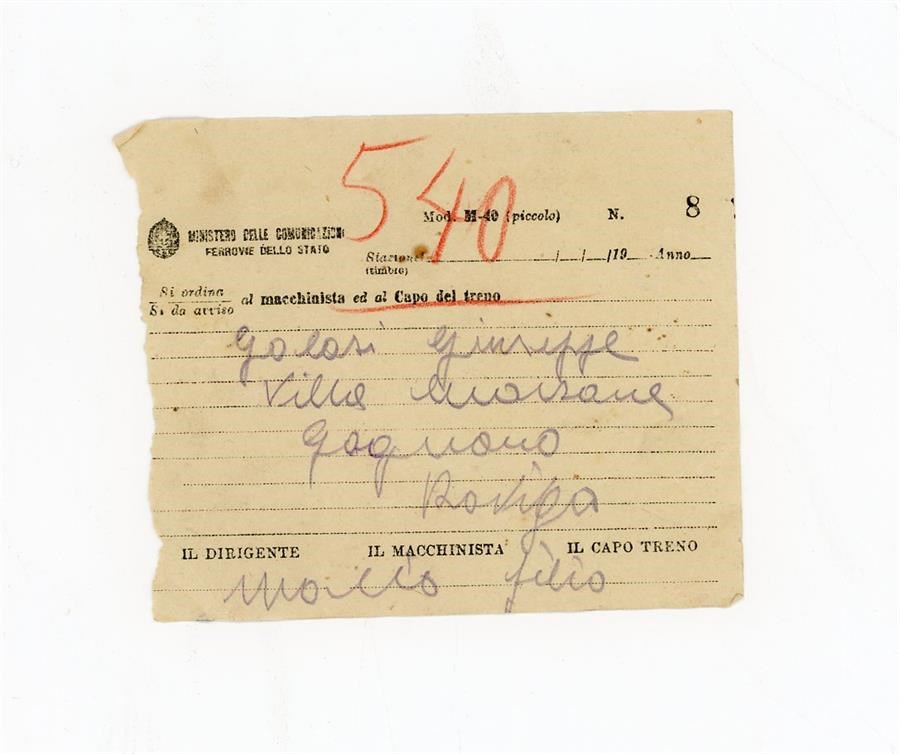 540
Mod. M-40 (piccolo) N. 8
MINISTERO DELLE COMUNICAZIONI
FERROVIE DELLO STATO
Stazione / / /19 Anno
(timbro)
Si ordina
Si da avviso
al macchinista ed al Capo del treno
Galasi Giuseppe
Villa Marzana
Gognano
Rovigo
IL DIRIGENTE IL MACCHINISTA IL CAPO TRENO
filio